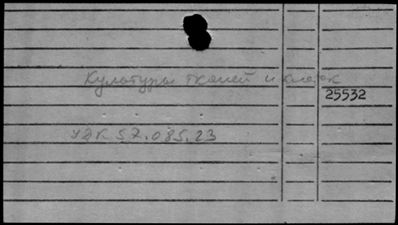 Культура тканей и клеток
25532
УДК 57.085.23